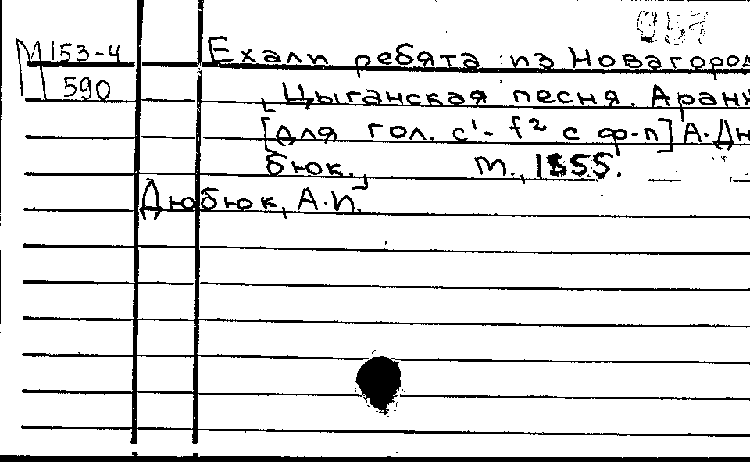 057
М 153-4 Ехали ребята из Новагород
590 Цыганская песня. Аран
[для гол. c¹- f² с ф-п] А.Дю
бюк. М., 1855.
Дюбюк, А.И.